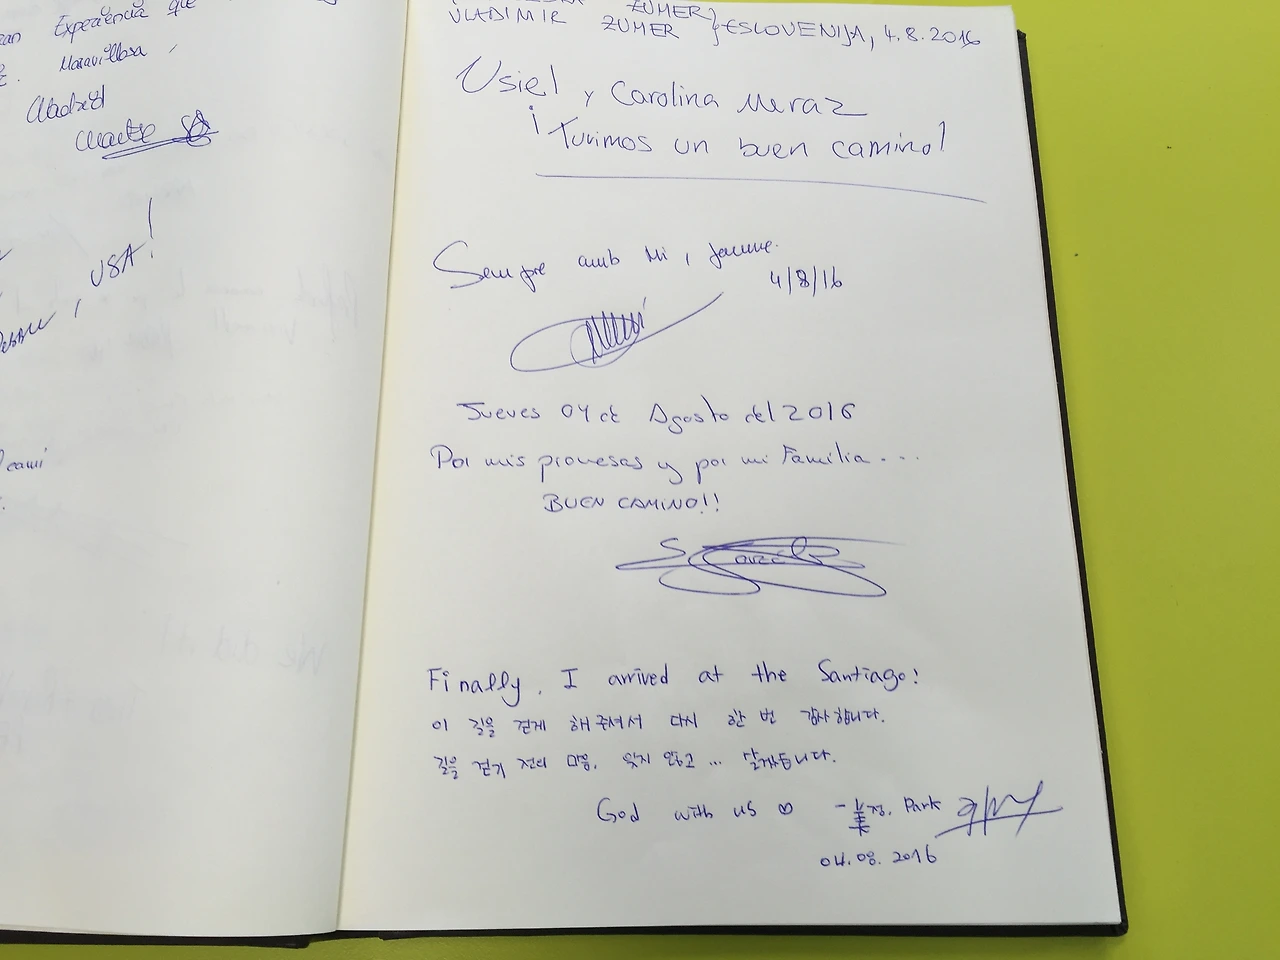 Experiencia que
Maravillosa
Madrid
, USA!
ZUMER
VLADIMIR ZUMER } ESLOVENIJA, 4.8.2016
Usiel y Carolina Meraz
¡Tuvimos un buen camino!
Sempre amb mi, Jaume.
4/8/16
Jueves 04 de Agosto del 2016
Por mis promesas y por mi Familia....
BUEN CAMINO!!
Finally, I arrived at the Santiago!
이 길을 걷게 해주셔서 다시 한 번 감사합니다.
길을 걷기 전의 마음, 잊지 않고... 살겠습니다.
God with us ♡ -美정. Park
04.08.2016